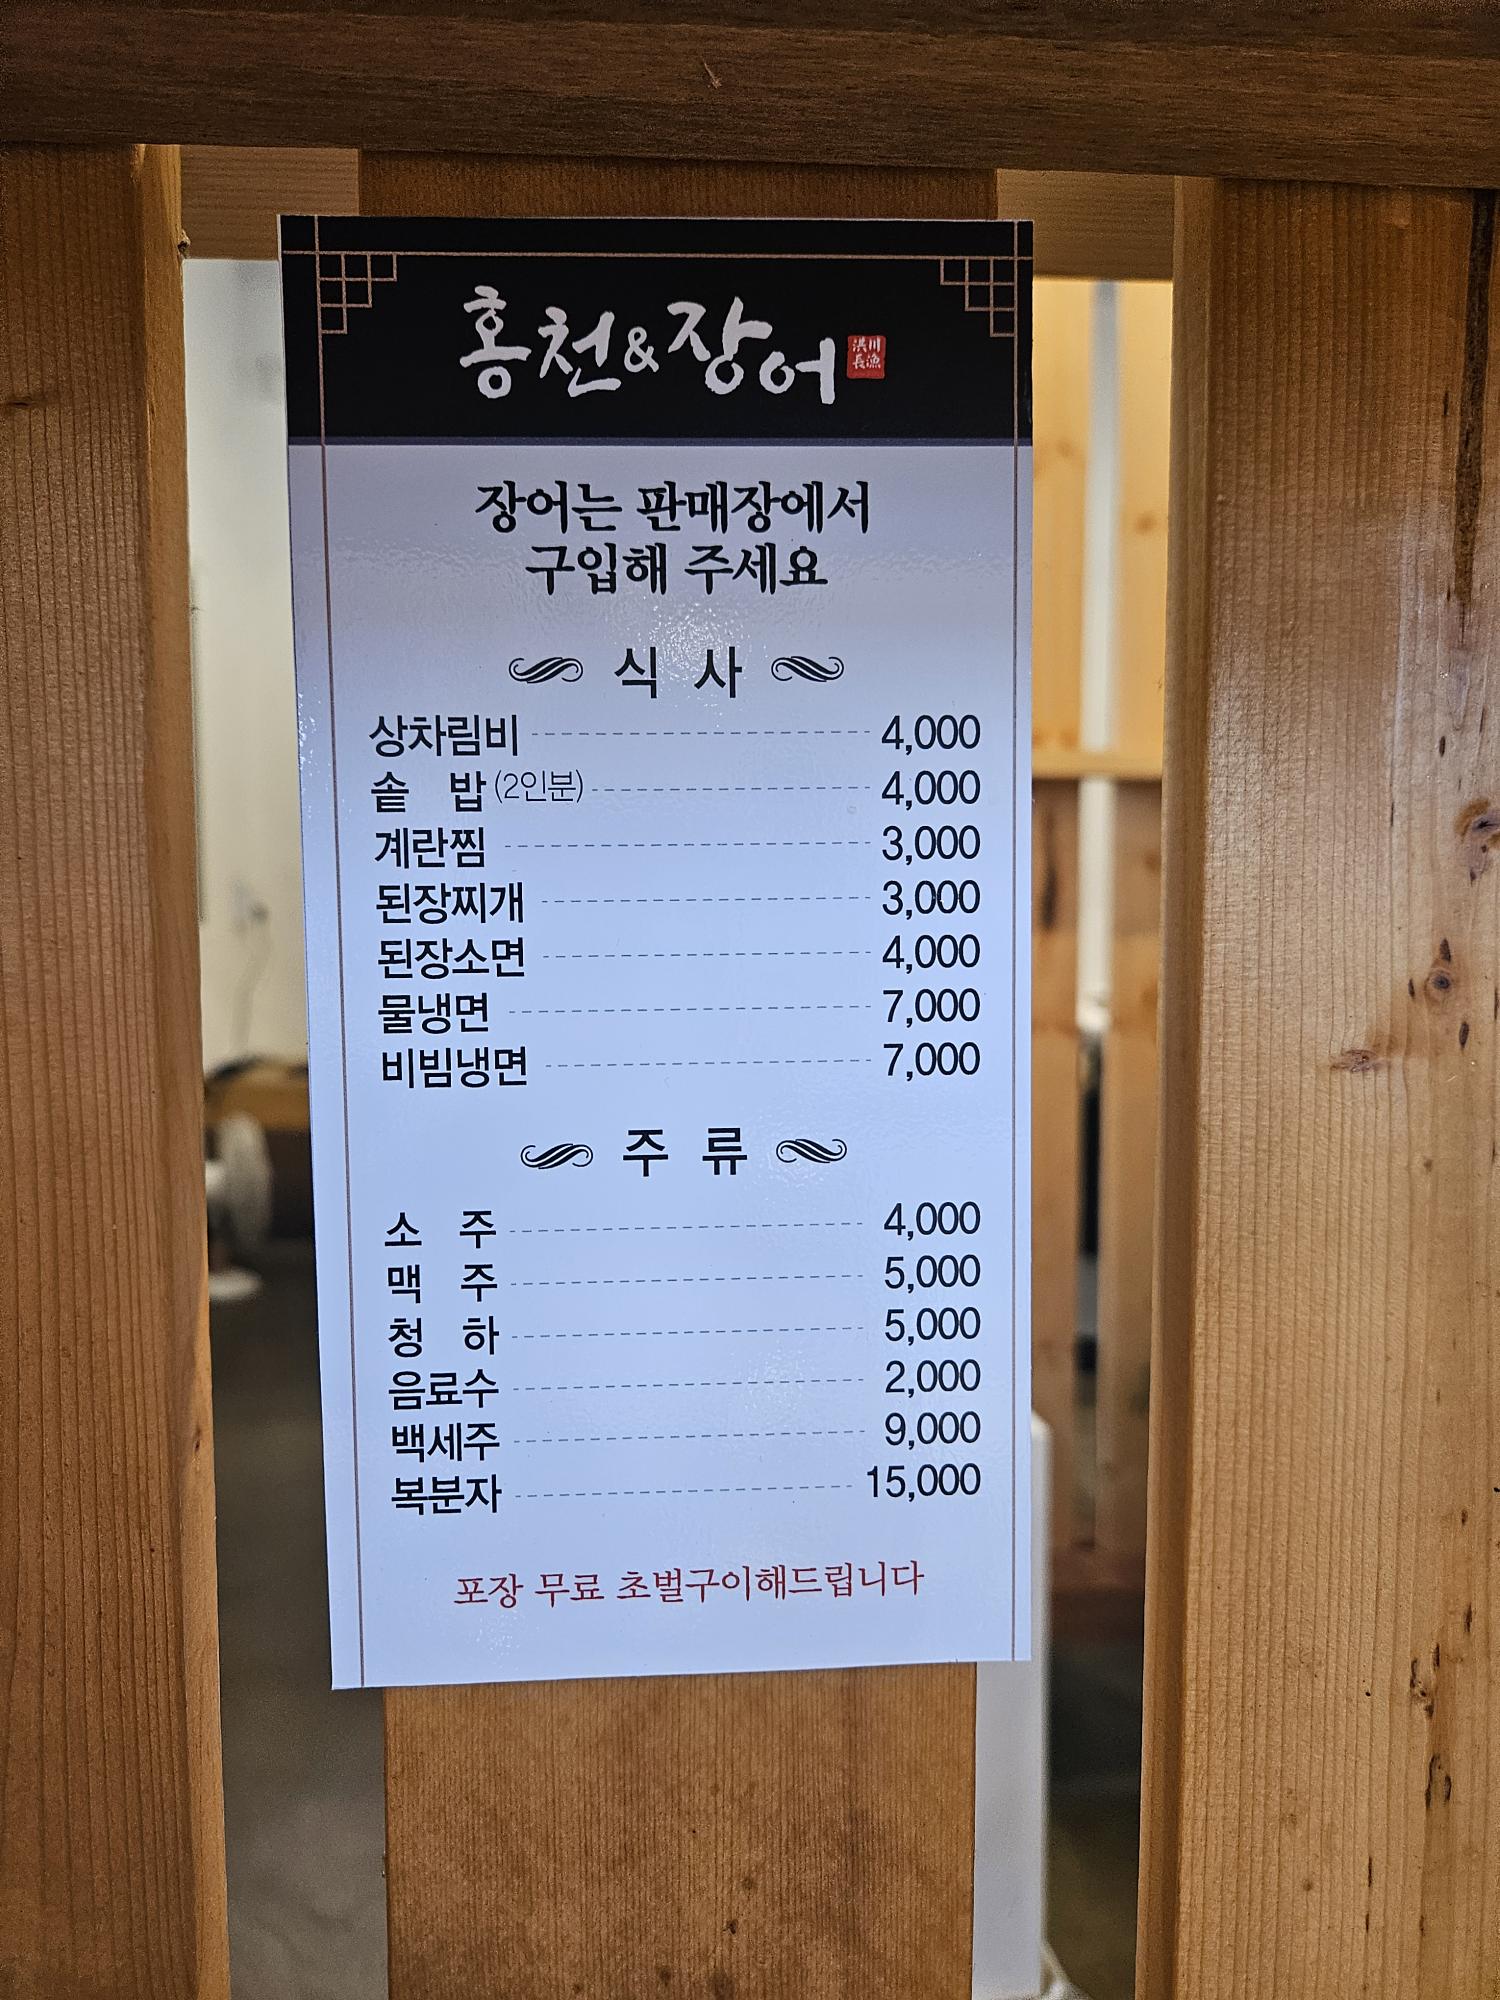 홍천&장어 洪川
長漁
장어는 판매장에서
구입해 주세요
식 사
상차림비 4,000
솥 밥 (2인분) 4,000
계란찜 3,000
된장찌개 3,000
된장소면 4,000
물냉면 7,000
비빔냉면 7,000
주 류
소 주 4,000
맥 주 5,000
청 하 5,000
음료수 2,000
백세주 9,000
복분자 15,000
포장 무료 초벌구이해드립니다